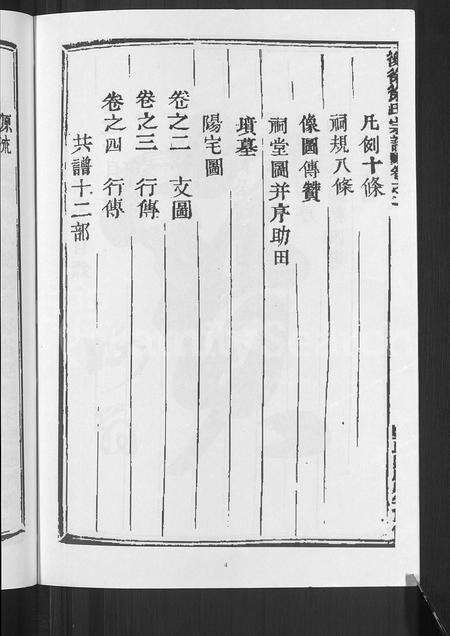 凡例十條
祠規八條
像圖傳贊
祠堂圖并序助田
墳墓
陽宅圖
卷之二 支圖
卷之三 行傳
卷之四 行傳
共譜十二部
源流
4